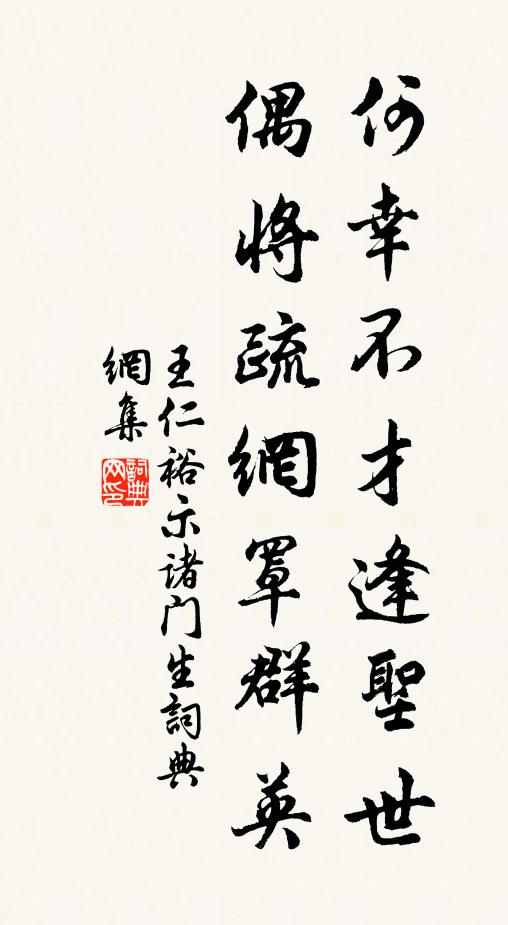 何幸不才逢聖世
偶將疏網罩群英
王仁裕示诸门生詞典
網集
詞典
网印